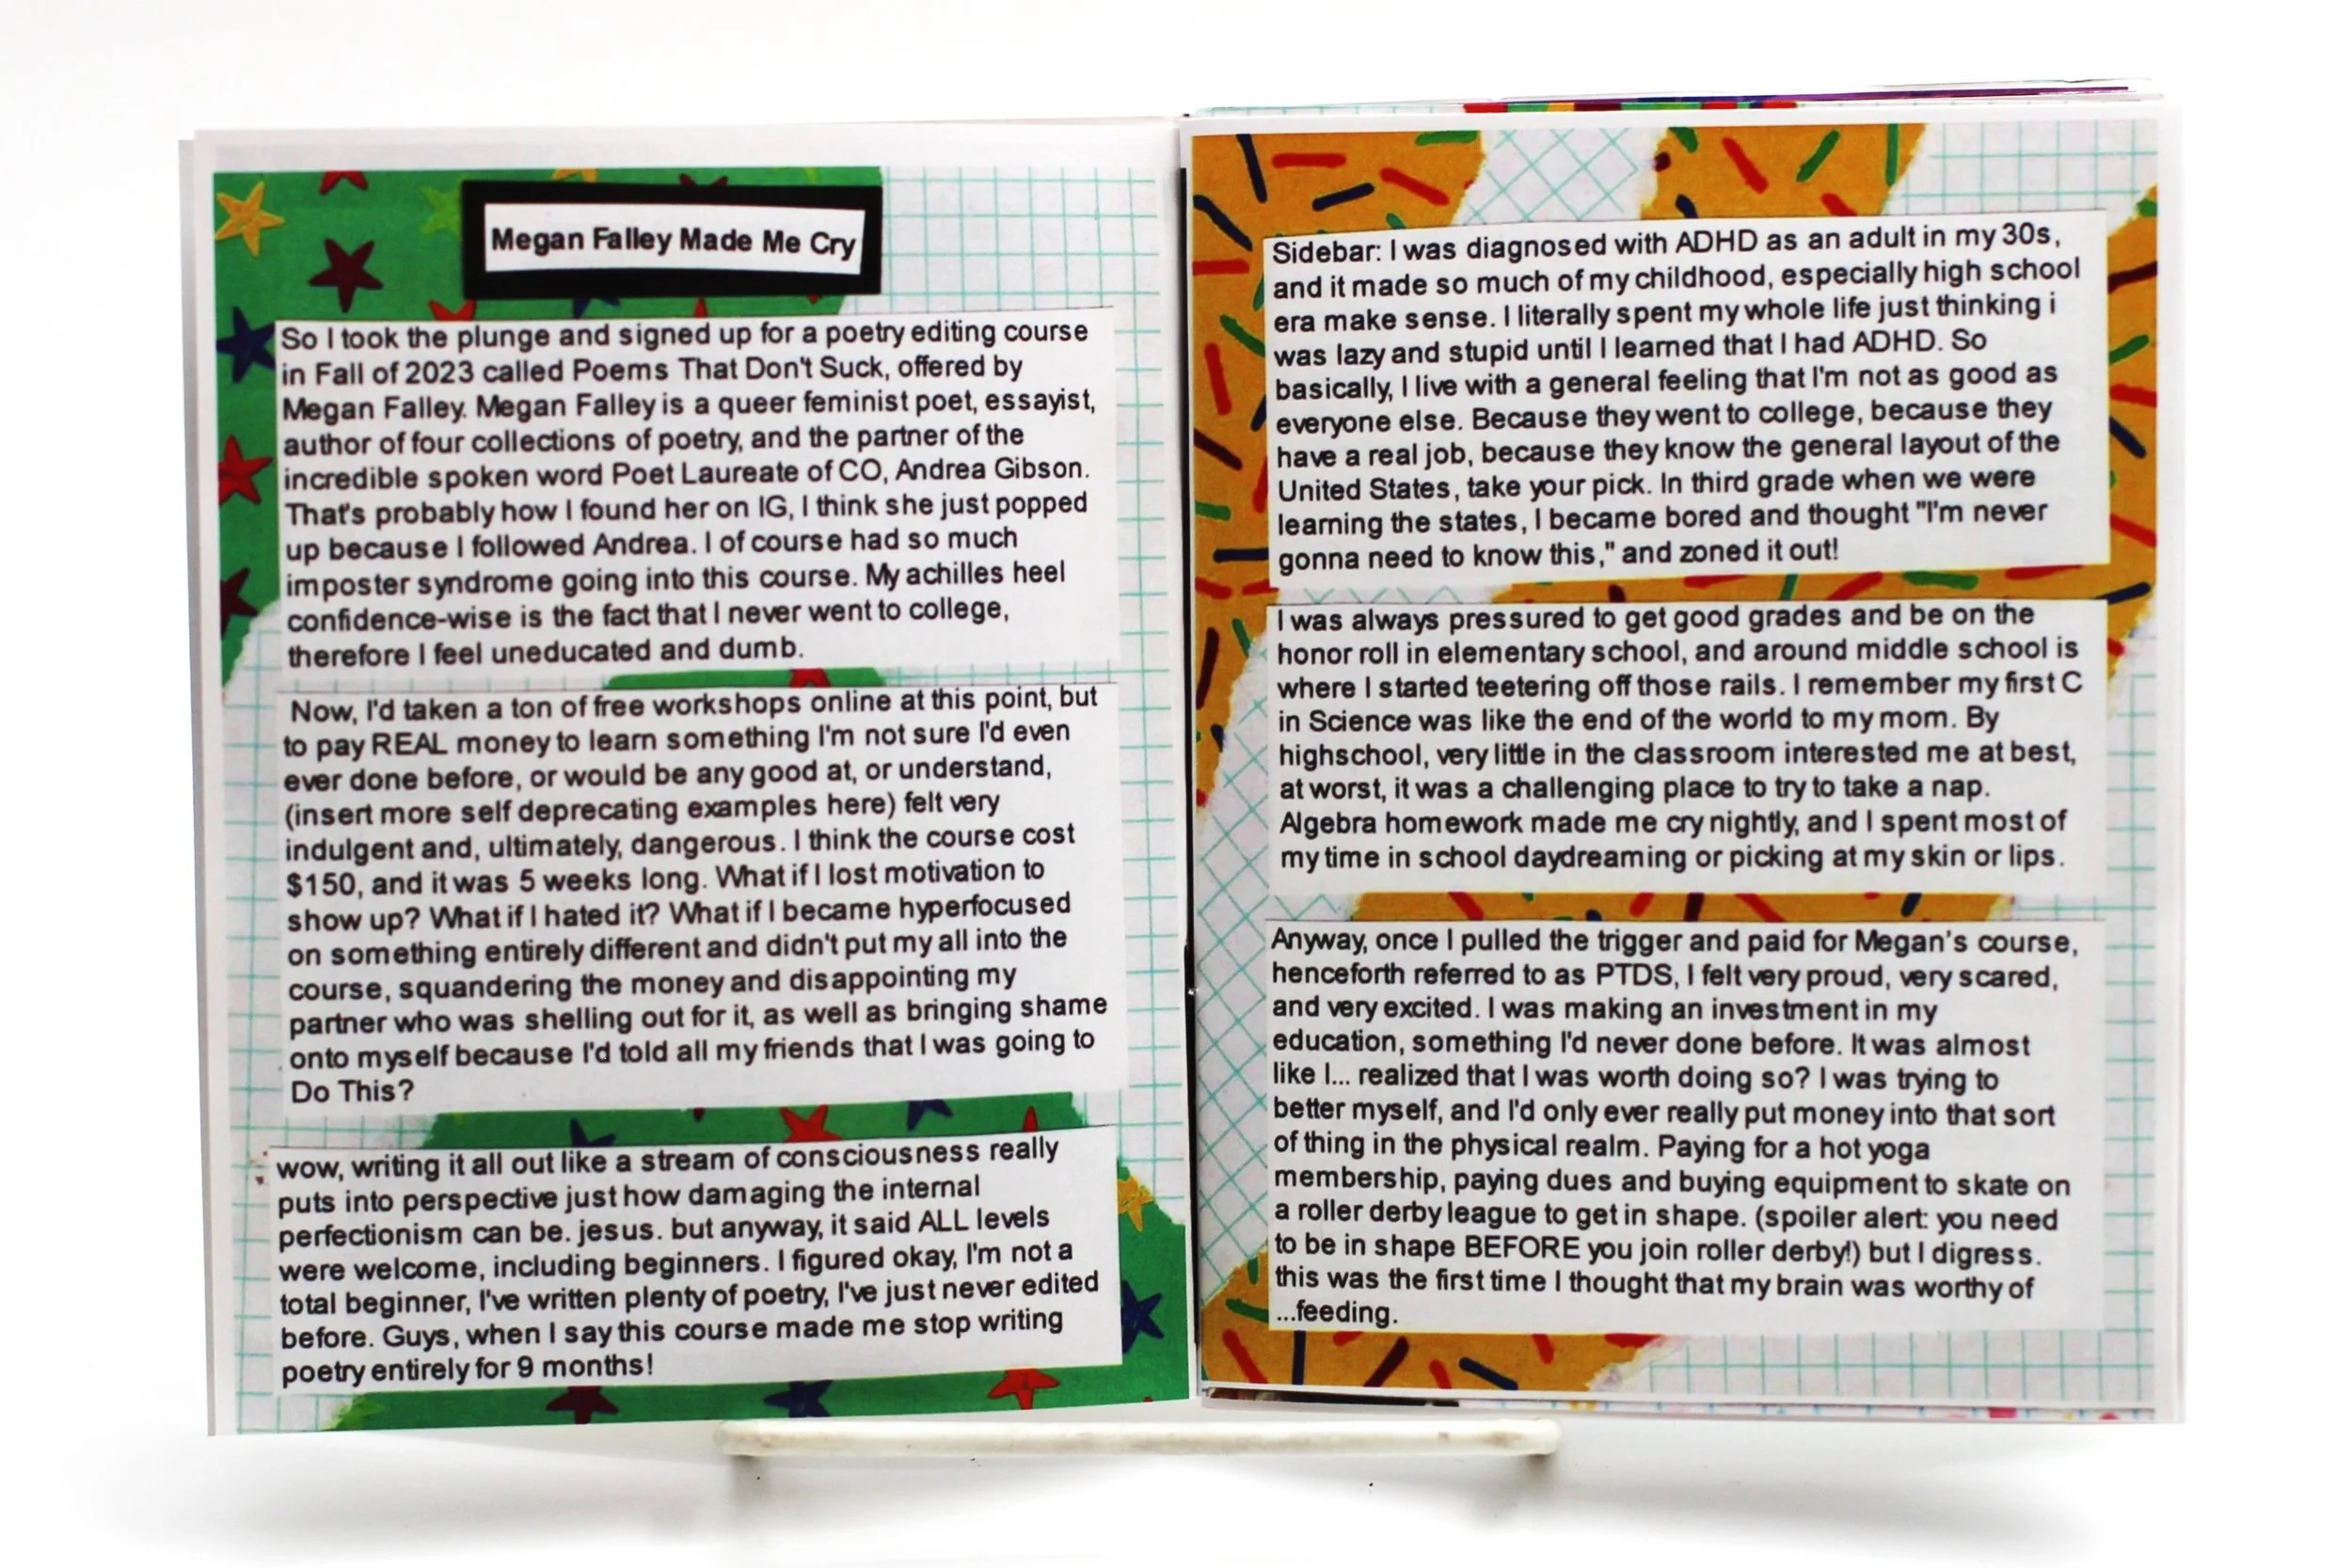 Megan Falley Made Me Cry
So I took the plunge and signed up for a poetry editing course
in Fall of 2023 called Poems That Don't Suck, offered by
Megan Falley. Megan Falley is a queer feminist poet, essayist,
author of four collections of poetry, and the partner of the
incredible spoken word Poet Laureate of CO, Andrea Gibson.
That's probably how I found her on IG, I think she just popped
up because I followed Andrea. I of course had so much
imposter syndrome going into this course. My achilles heel
confidence-wise is the fact that I never went to college,
therefore I feel uneducated and dumb.
Now, I'd taken a ton of free workshops online at this point, but
to pay REAL money to learn something I'm not sure I'd even
ever done before, or would be any good at, or understand,
(insert more self deprecating examples here) felt very
indulgent and, ultimately, dangerous. I think the course cost
$150, and it was 5 weeks long. What if I lost motivation to
show up? What if I hated it? What if I became hyperfocused
on something entirely different and didn't put my all into the
course, squandering the money and disappointing my
partner who was shelling out for it, as well as bringing shame
onto myself because I'd told all my friends that I was going to
Do This?
wow, writing it all out like a stream of consciousness really
puts into perspective just how damaging the internal
perfectionism can be. jesus. but anyway, it said ALL levels
were welcome, including beginners. I figured okay, I'm not a
total beginner, I've written plenty of poetry, I've just never edited
before. Guys, when I say this course made me stop writing
poetry entirely for 9 months!
Sidebar: I was diagnosed with ADHD as an adult in my 30s,
and it made so much of my childhood, especially high school
era make sense. I literally spent my whole life just thinking i
was lazy and stupid until I learned that I had ADHD. So
basically, I live with a general feeling that I'm not as good as
everyone else. Because they went to college, because they
have a real job, because they know the general layout of the
United States, take your pick. In third grade when we were
learning the states, I became bored and thought "I'm never
gonna need to know this," and zoned it out!
I was always pressured to get good grades and be on the
honor roll in elementary school, and around middle school is
where I started teetering off those rails. I remember my first C
in Science was like the end of the world to my mom. By
highschool, very little in the classroom interested me at best,
at worst, it was a challenging place to try to take a nap.
Algebra homework made me cry nightly, and I spent most of
my time in school daydreaming or picking at my skin or lips.
Anyway, once I pulled the trigger and paid for Megan's course,
henceforth referred to as PTDS, I felt very proud, very scared,
and very excited. I was making an investment in my
education, something I'd never done before. It was almost
like I... realized that I was worth doing so? I was trying to
better myself, and I'd only ever really put money into that sort
of thing in the physical realm. Paying for a hot yoga
membership, paying dues and buying equipment to skate on
a roller derby league to get in shape. (spoiler alert: you need
to be in shape BEFORE you join roller derby!) but I digress.
this was the first time I thought that my brain was worthy of
...feeding.